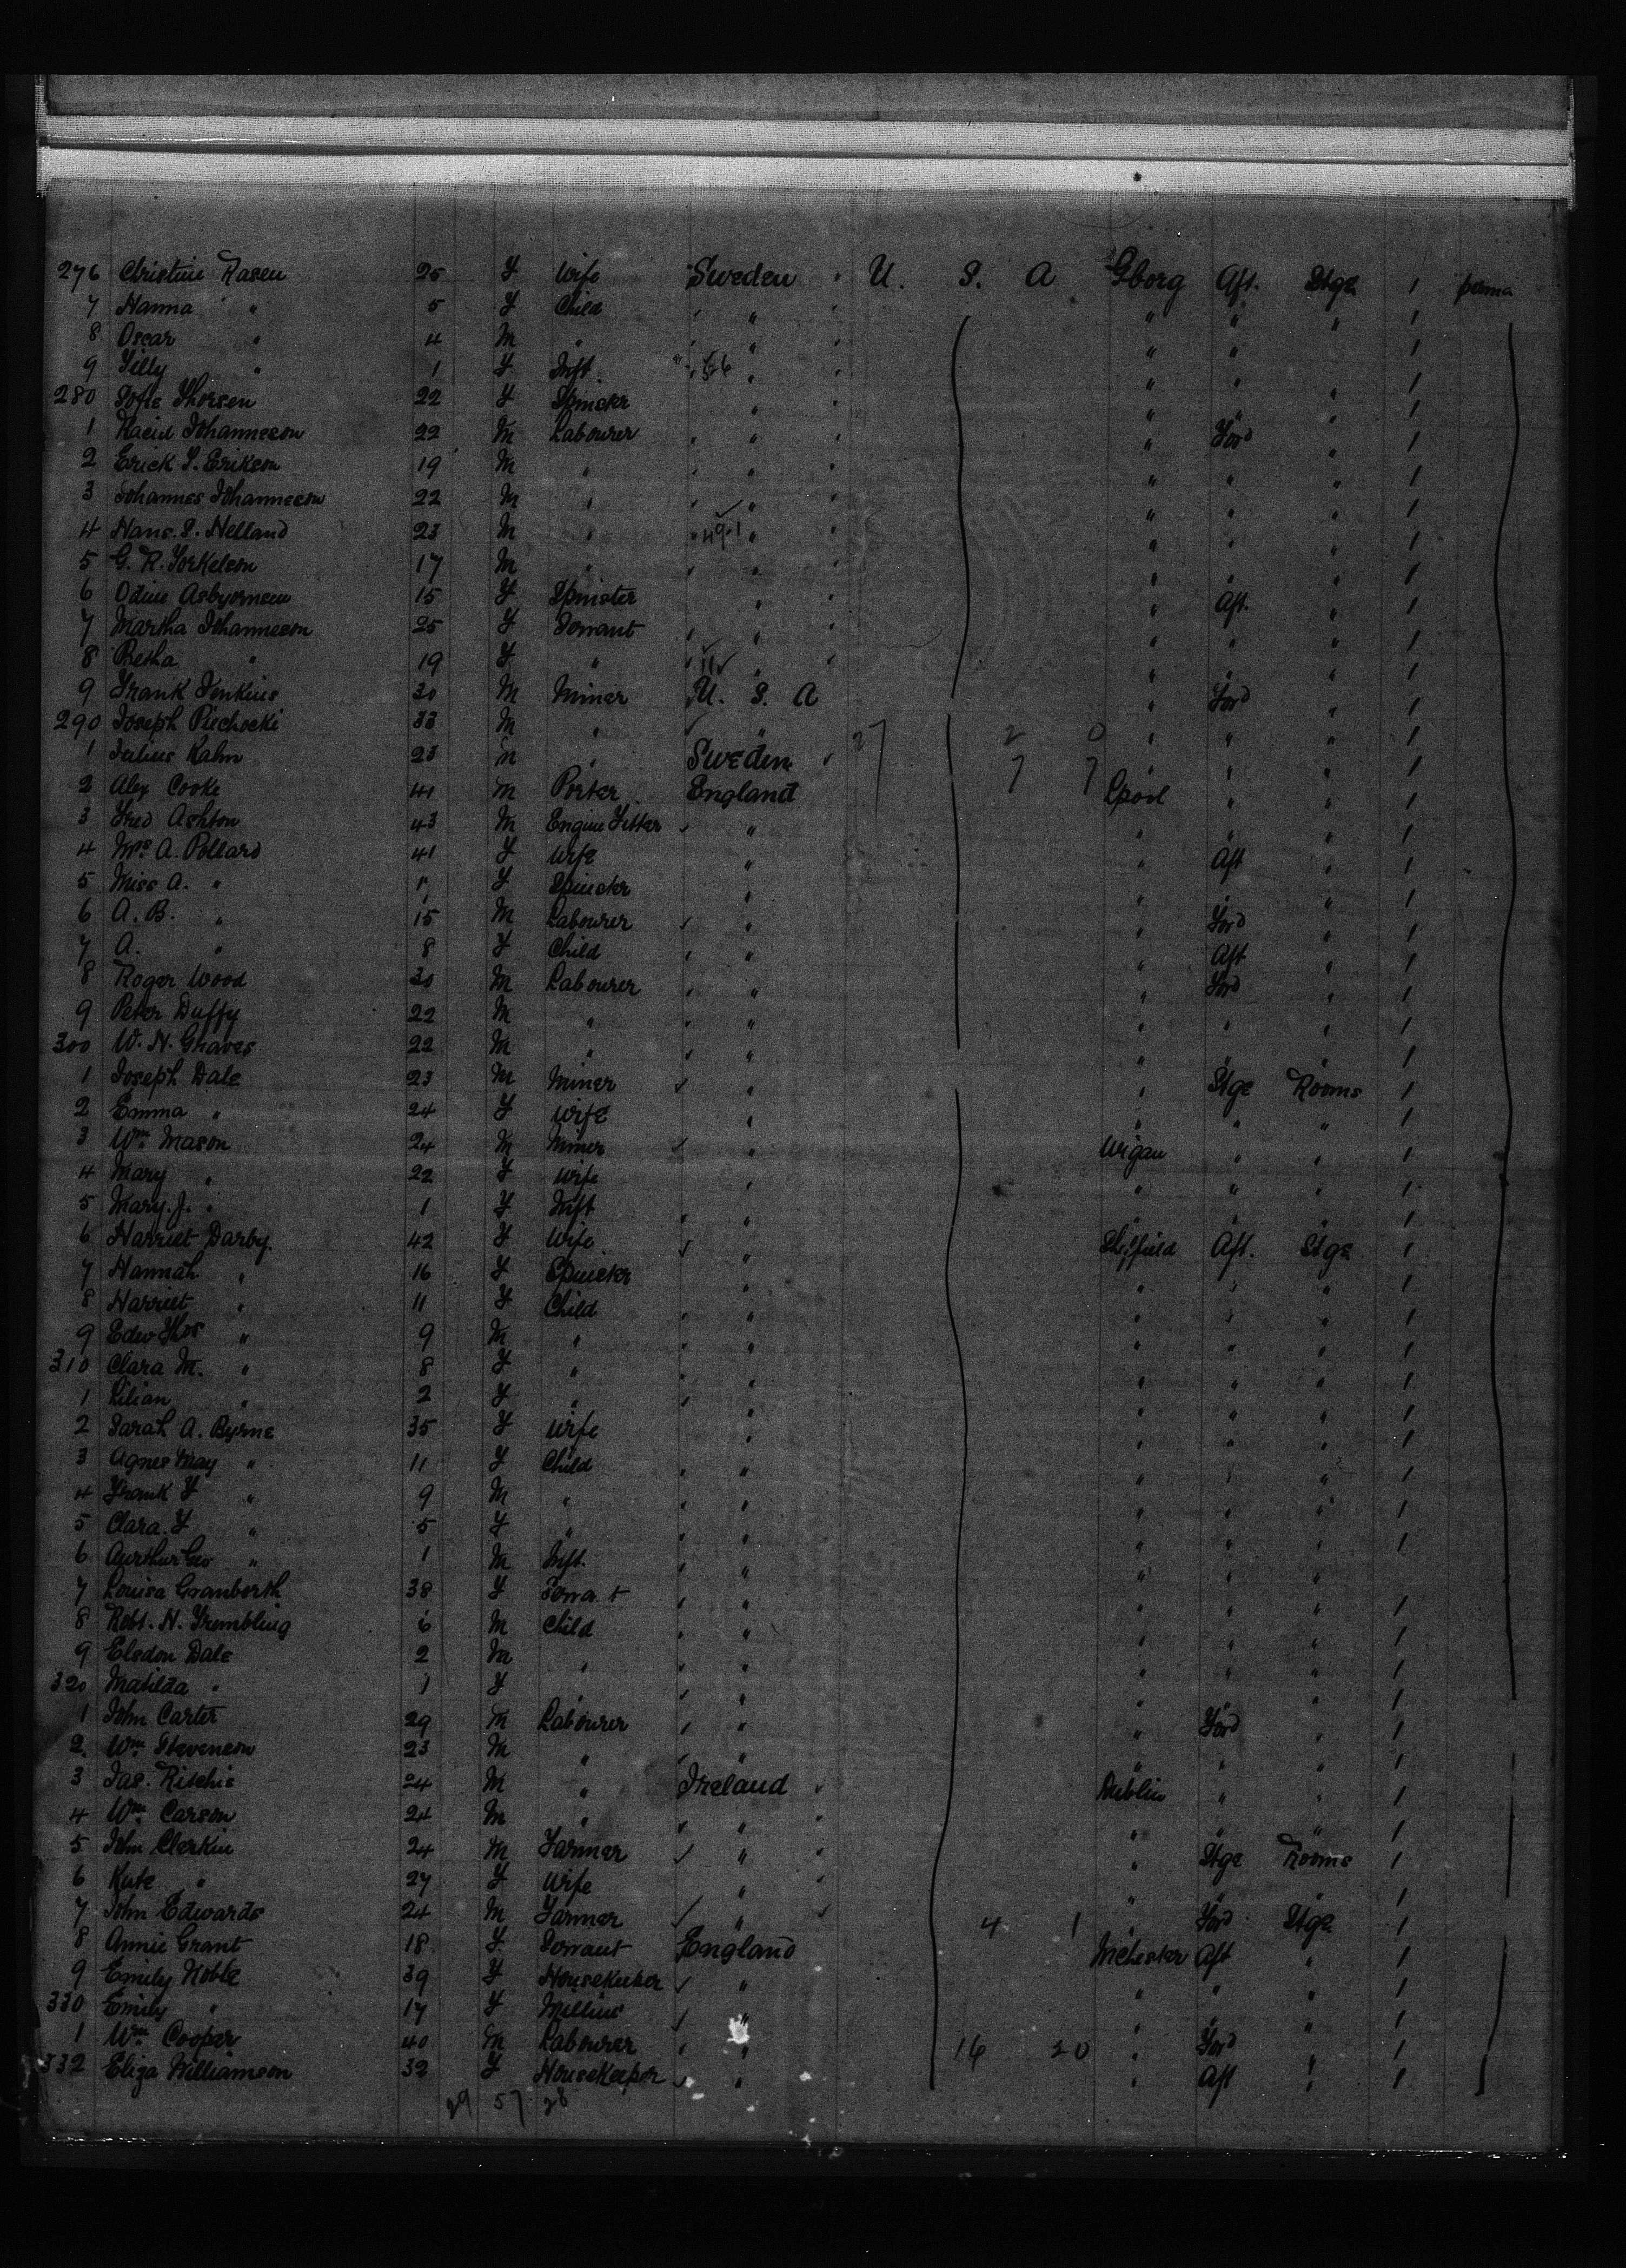 276 Christine Rasen 25 F Wife Sweden " U. S. A Gborg Aft. Stge 1 perma
7 Hanna " 5 F Child " " " " " 1
8 Oscar " 4 M " " " " 1
9 Tilly " 1 F Inft. " " " " " 1
280 Sofie Thorsen 22 F Spinster " " " " 1
1 Johanneson 22 M Labourer " " " Ford " 1
2 Erick S. Erikson 19 M " " " " " 1
3 Johannes Johanneson 22 M " " " " " 1
4 Hans. S. Helland 23 M " 49-1 " " " " 1
5 G. R. Torkelson 17 M " " " " " 1
6 Odine Asbyornsen 15 F Spinster " " Aft. " 1
7 Martha Johanneson 25 F Servant " " " " 1
8 Retha " 19 F " 11 " " " " 1
9 Frank Jenkins 30 M Miner U. S. A " Ford " 1
290 Joseph Piechocki 33 M " " 2 0 " " " 1
1 Julius Kahn 23 M " Sweden 27 7 7 " " " 1
2 Alex Cooke 41 M Porter England Lpool " " 1
3 Fred Ashton 43 M Engine Fitter " " " " 1
4 Mrs. A. Pollard 41 F Wife " " Aft " 1
5 Miss A. " F Spinster " " " " 1
6 A. B. " 15 M Labourer " " Ford " 1
7 A. " 8 F Child " " Aft " 1
8 Roger Wood 30 M Labourer " " Ford " 1
9 Peter Duffy 22 M " " " " " 1
300 W. H. Graves 22 M " " " " " 1
1 Joseph Dale 23 M Miner " " Stge Rooms 1
2 Emma " 24 F Wife " " " " 1
3 Wm. Mason 24 M Miner " Wigan " " 1
4 Mary " 22 F Wife " " " " 1
5 Mary. J. " 1 F Inft " " " "
6 Harriet Darby 42 F Wife " Sheffield Aft. Stge 1
7 Hannah " 16 F Spinster " " " " 1
8 Harriet " 11 F Child " " " " 1
9 Edw Thos " 9 M " " " " " 1
310 Clara M. " 8 F " " " " " 1
1 Lilian " 2 F " " " " " 1
2 Sarah A. Byrne 35 F Wife " " " " 1
3 Agnes May " 11 F Child " " " " 1
4 Frank F " 9 M " " " " " 1
5 Clara. F " 5 F " " " " " 1
6 Aurthur Geo " 1 M Inft. " " " "
7 Louisa Granborth 38 F Serva t " " " " 1
8 Robt. H. Trembling 6 M Child " " " " 1
9 Elsdon Dale 2 M " " " " " 1
320 Matilda " 1 F " " " " " 1
1 John Carter 29 M Labourer " " Ford " 1
2. Wm Stevenson 23 M " " " " " 1
3 Jas. Ritchie 24 M " Ireland Dublin " " 1
4 Wm. Carson 24 M " " " " " 1
5 John Clerkin 24 M Farmer " " Stge Rooms 1
6 Kate " 27 F Wife " " " " 1
7 John Edwards 24 M Farmer " 4 1 " Ford Stge 1
8 Annie Grant 18 F Servant England Mchester Aft " 1
9 Emily Noble 39 F Housekeeper " " " " 1
330 Emily " 17 F " " " " 1
1 Wm. Cooper 40 M Labourer " 16 20 " Ford " 1
332 Eliza Williamson 32 F Housekeeper " " Aft " 1
29 57 28